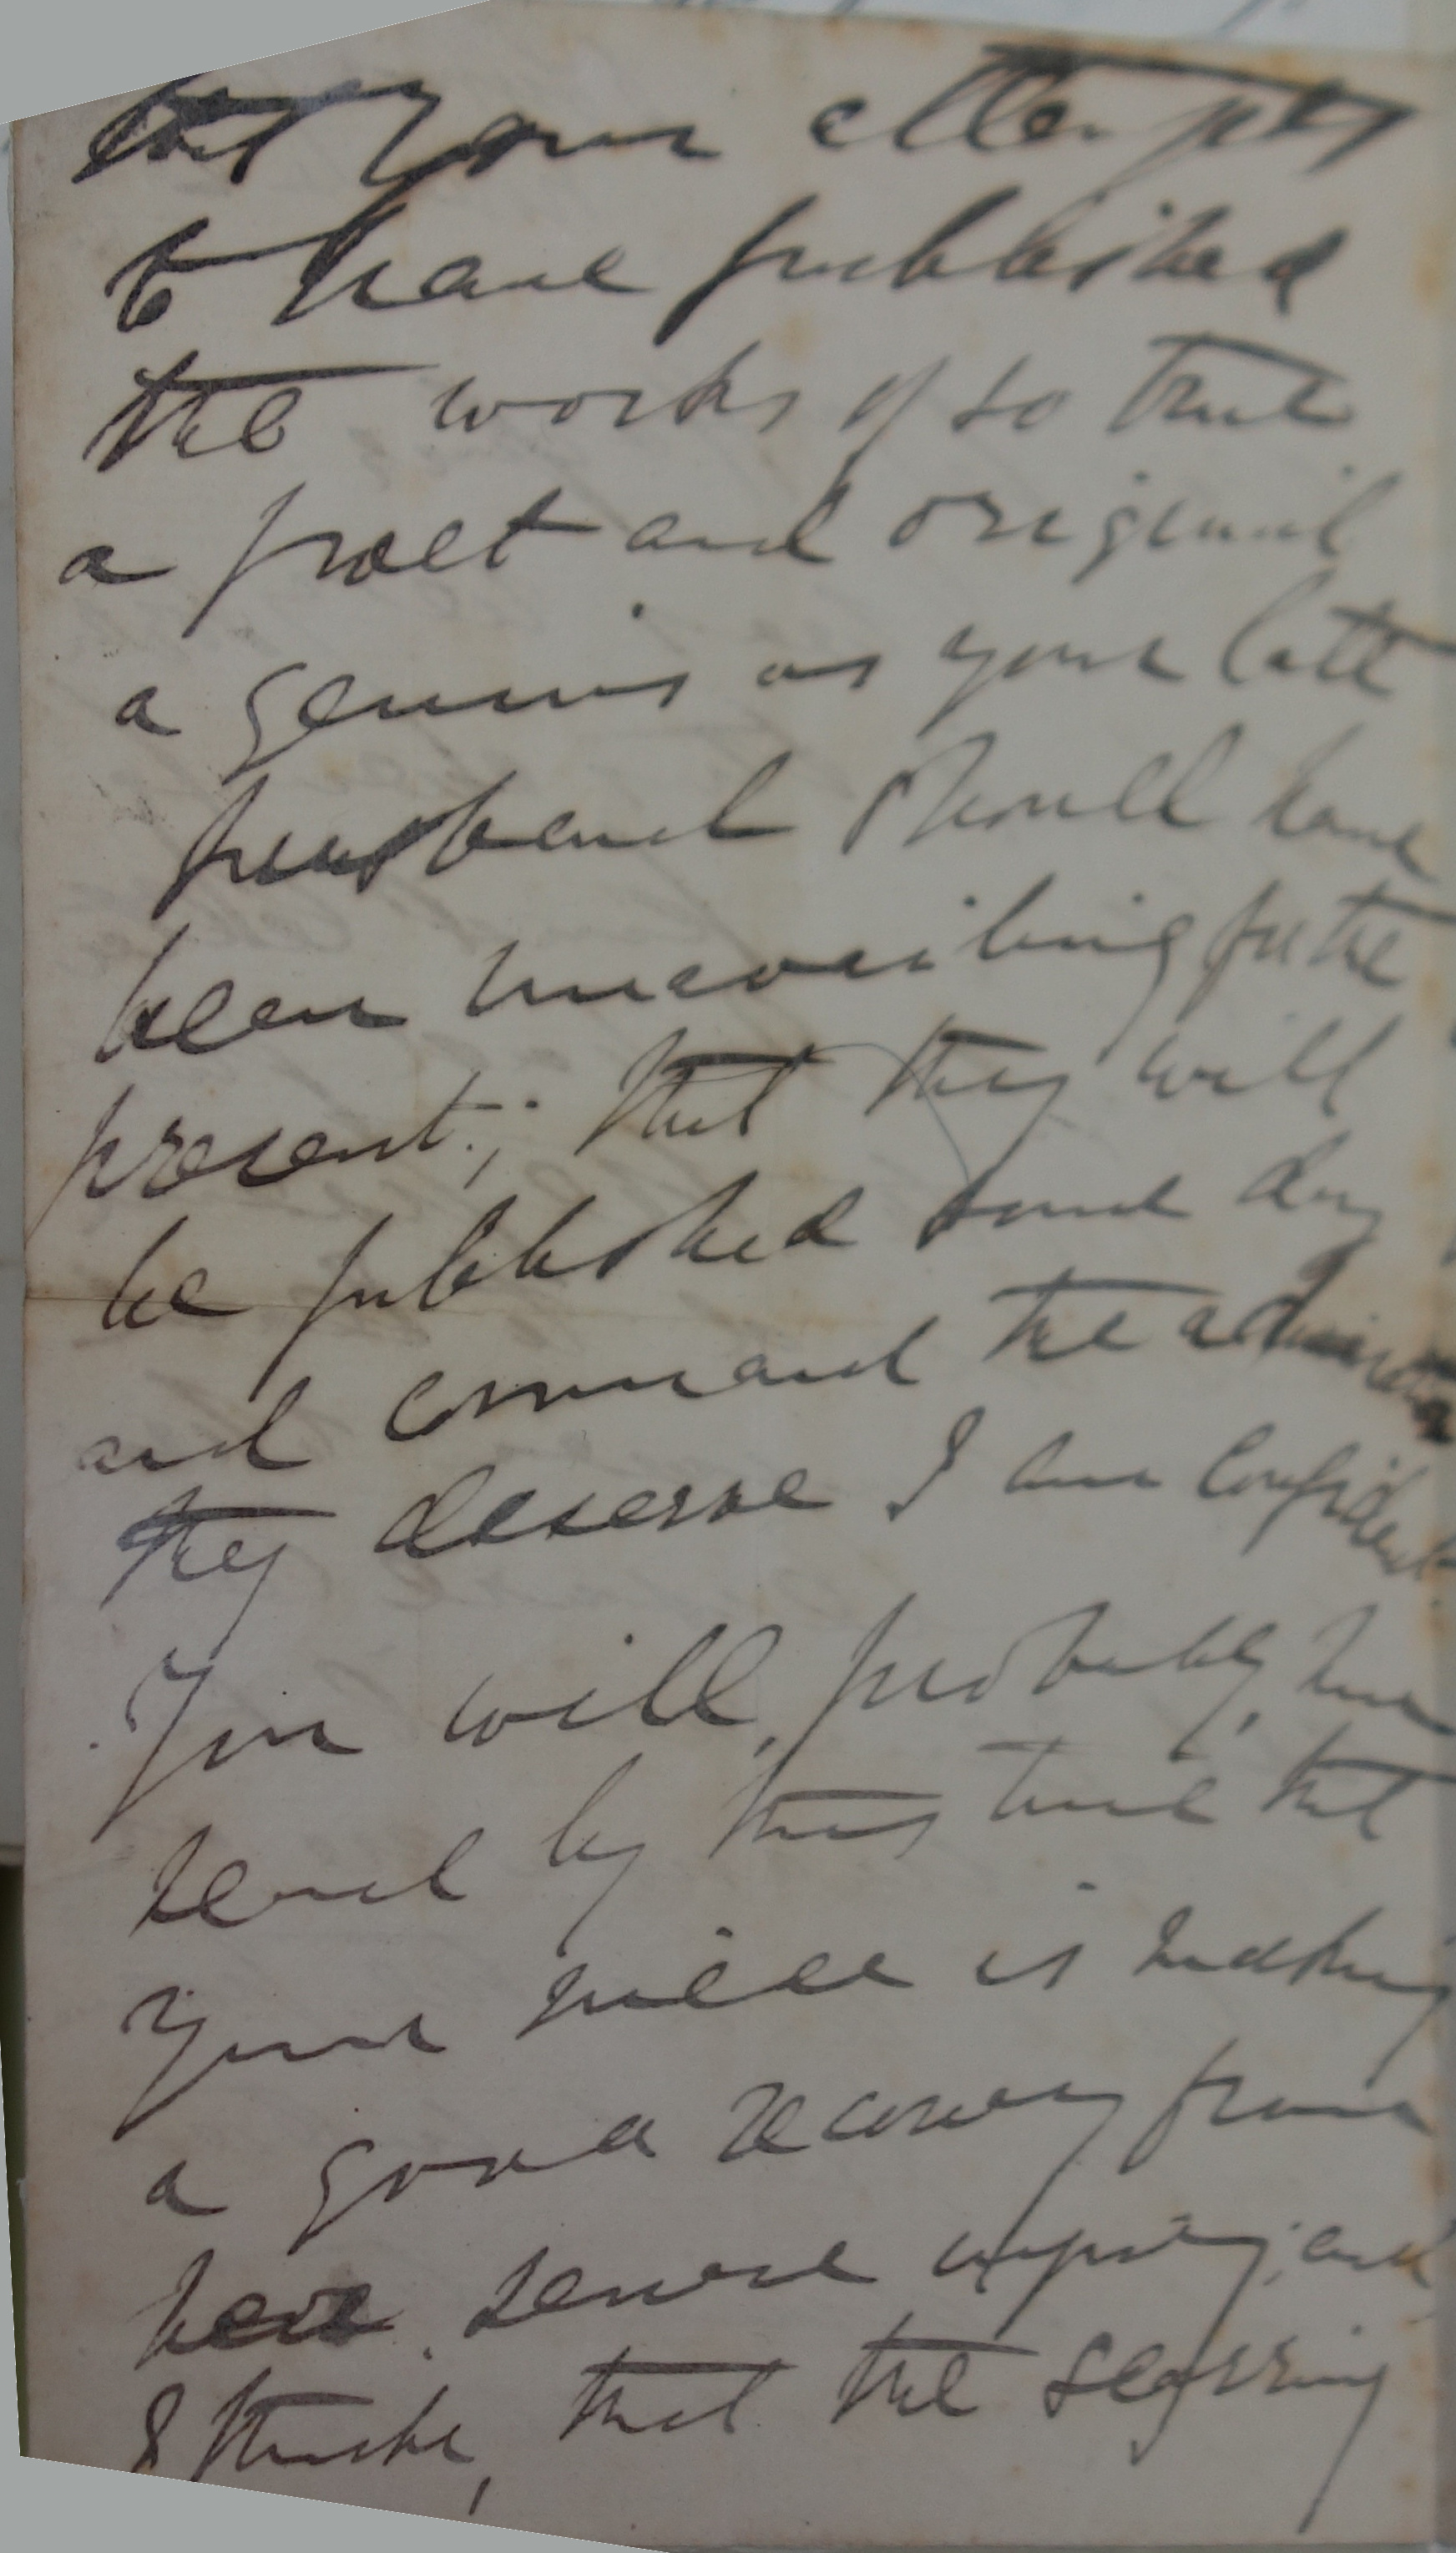 that your attempts
to have published
the works of so true
a poet and original
a genius as your late
husband should have
been unavailing for the
present; that they will
be published some day
and command the admiration
they deserve I am confident.
You will, probably, have
heard by this time that
your niece is making
a good recovery from
her severe injury; and
I think, that the scarring